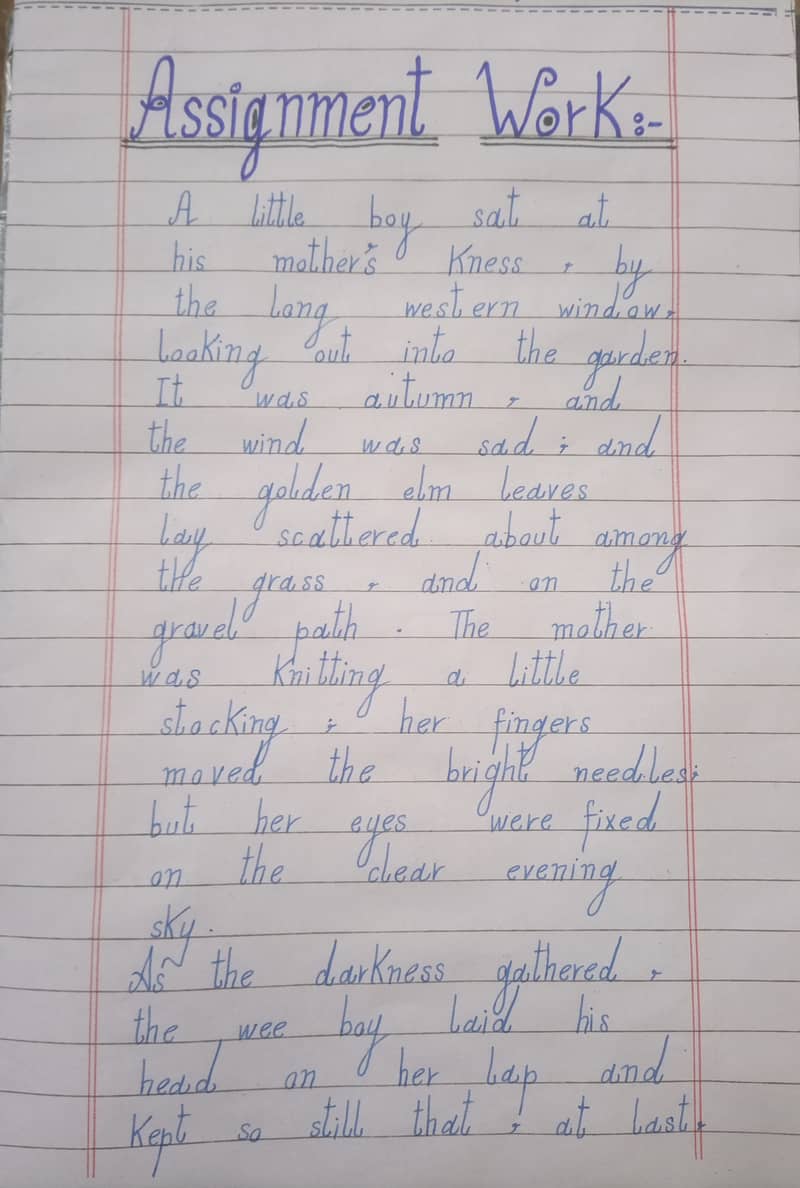 Assignment Work:-
A little boy sat at
his mother's Kness , by
the long western window,
looking out into the garden.
It was autumn , and
the wind was sad ; and
the golden elm leaves
lay scattered about among
the grass , and on the
gravel path . The mother
was Knitting a little
stocking ; her fingers
moved the bright needles;
but her eyes were fixed
on the clear evening
sky.
As the darkness gathered ,
the wee boy laid his
head on her lap and
Kept so still that , at last,